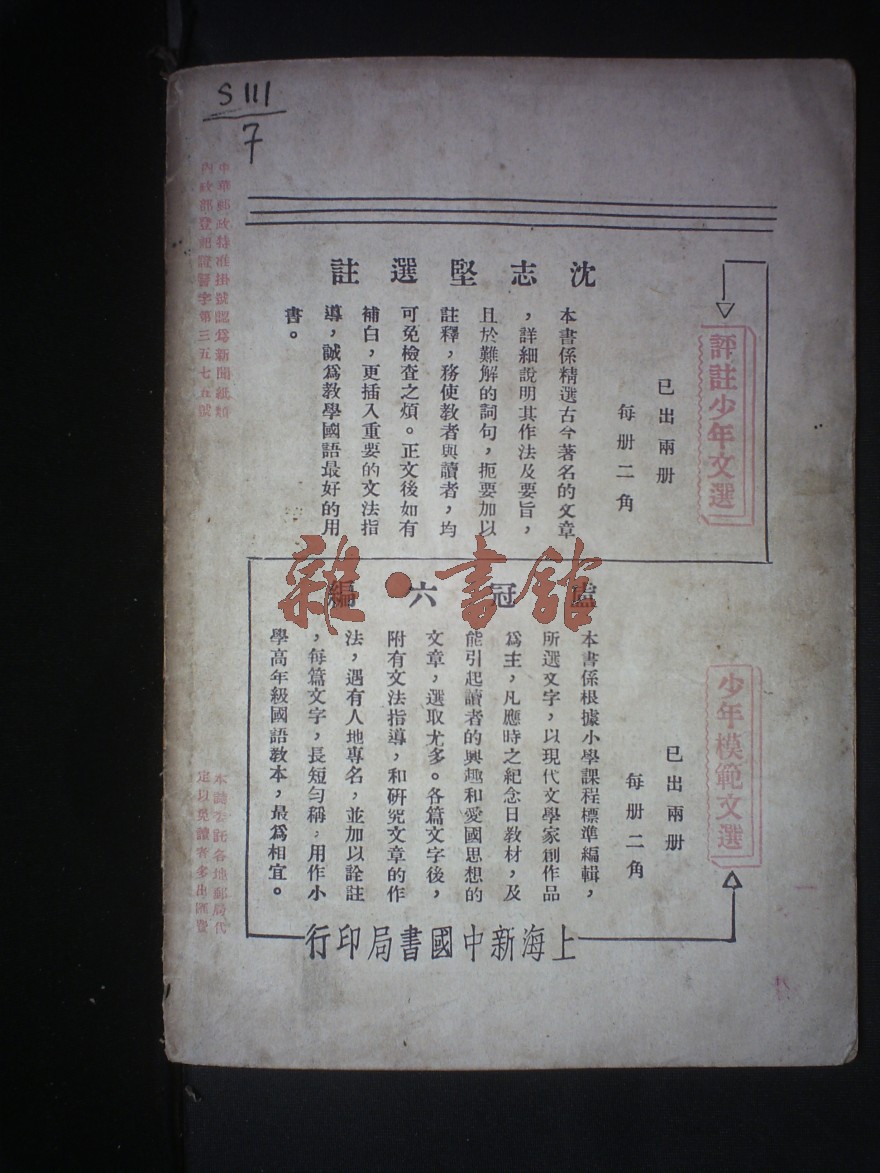 S 111
7
評註少年文選
已出兩册
每册二角
沈志堅選註
本書係精選古今著名的文章
，詳細說明其作法及要旨，
且於難解的詞句，扼要加以
註釋，務使教者與讀者，均
可免檢查之煩。正文後如有
補白，更插入重要的文法指
導，誠爲教學國語最好的用
書。
少年模範文選
已出兩册
每册二角
盧冠六編
本書係根據小學課程標準編輯，
所選文字，以現代文學家創作品
爲主，凡應時之紀念日教材，及
能引起讀者的興趣和愛國思想的
文章，選取尤多。各篇文字後，
附有文法指導，和研究文章的作
法，遇有人地專名，並加以詮註
，每篇文字，長短勻稱，用作小
學高年級國語教本，最爲相宜。
上海新中國書局印行
中華郵政特准掛號認爲新聞紙類
內政部登記證警字第三五七五號
本誌委託各地郵局代
定以免讀者多出匯費
雜·書館